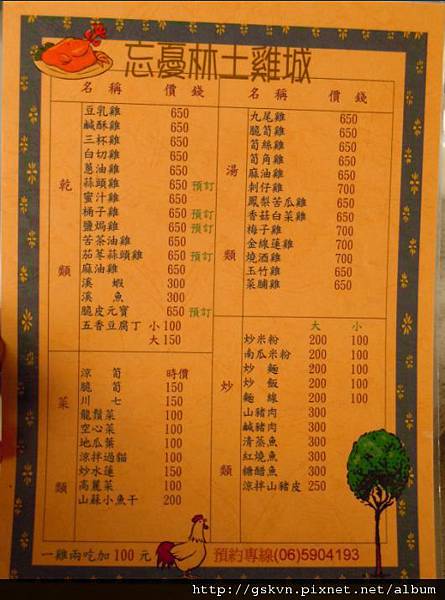 忘憂林土雞城
名稱 價錢
乾類
豆乳雞 650
鹹酥雞 650
三杯雞 650
白切雞 650
蔥油雞 650
蒜頭雞 650 預訂
蜜汁雞 650
桶子雞 650 預訂
鹽焗雞 650 預訂
苦茶油雞 650
茄苳蒜頭雞 650 預訂
麻油雞 650
溪蝦 300
溪魚 300
脆皮元寶 650 預訂
五香豆腐丁 小100
大150
菜類
涼筍 時價
脆筍 150
川七 150
龍鬚菜 100
空心菜 100
地瓜葉 100
涼拌過貓 100
炒水蓮 150
高麗菜 100
山蘇小魚干 200
名稱 價錢
湯類
九尾雞 650
脆筍雞 650
筍絲雞 650
筍角雞 650
麻油雞 650
刺仔雞 700
鳳梨苦瓜雞 650
香菇白菜雞 650
梅子雞 700
金線蓮雞 700
燒酒雞 700
玉竹雞 650
菜脯雞 650
炒類
大 小
炒米粉 200 100
南瓜米粉 200 100
炒麵 200 100
炒飯 200 100
麵線 200 100
山豬肉 300
鹹豬肉 300
清蒸魚 300
紅燒魚 300
糖醋魚 300
涼拌山豬皮 250
一雞兩吃加100元
預約專線(06)5904193
http://gskvn.pixnet.net/album